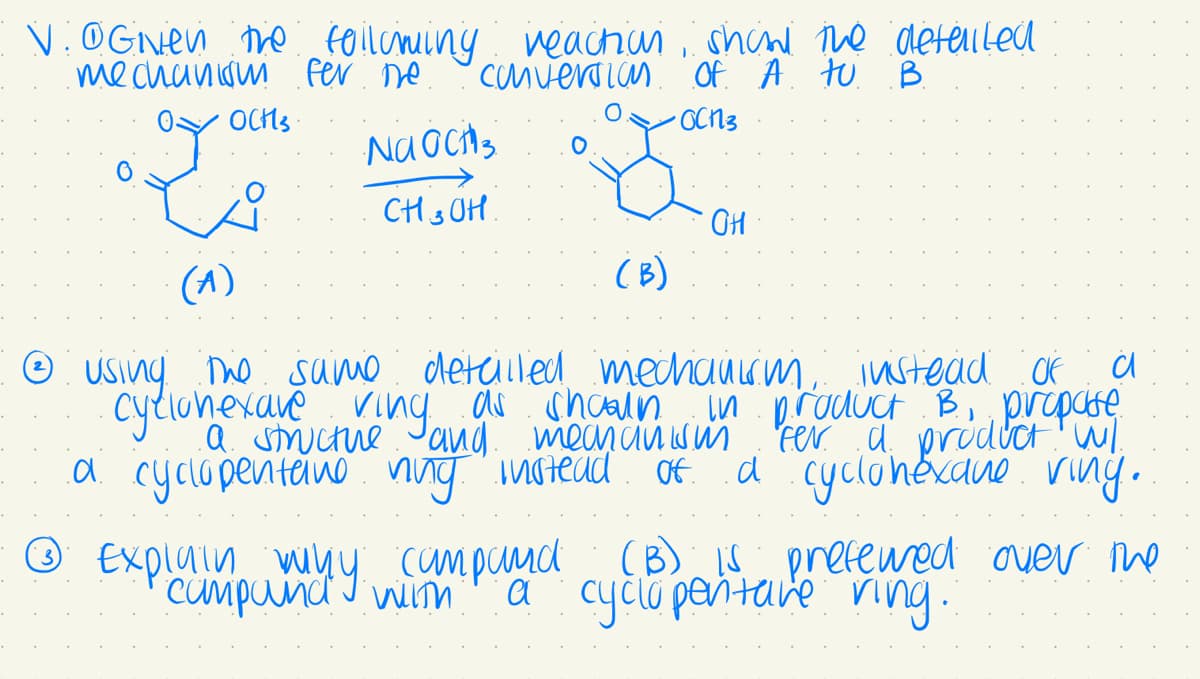 V. ① Given the following reaction, show the detailed
mechanism for the conversion of A to B
O OCH3 O OCH3
NaOCH3
O O O
CH3OH OH
(A) (B)
② using the same detailed mechanism, instead of a
cyclohexane ring as shown in product B, propose
a structure and mechanism for a product w/
a cyclopentane ring instead of a cyclohexane ring.
③ Explain why compound (B) is preferred over the
compound with a cyclopentane ring.